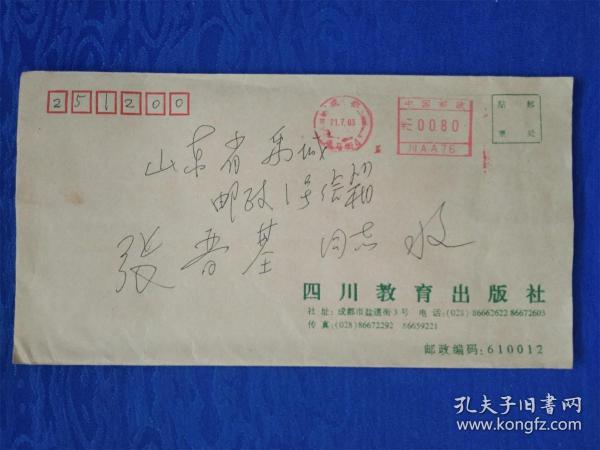 251200
中国邮政
21.7.03
00.80
川AA76
贴邮
票处
山东省禹城
邮政1号信箱
张晋基 同志 收
四川教育出版社
社址:成都市盐道街3号 电话:(028)86662622 86672603
传真:(028)86672292 86659221
邮政编码:610012
孔夫子旧书网
www.kongfz.com